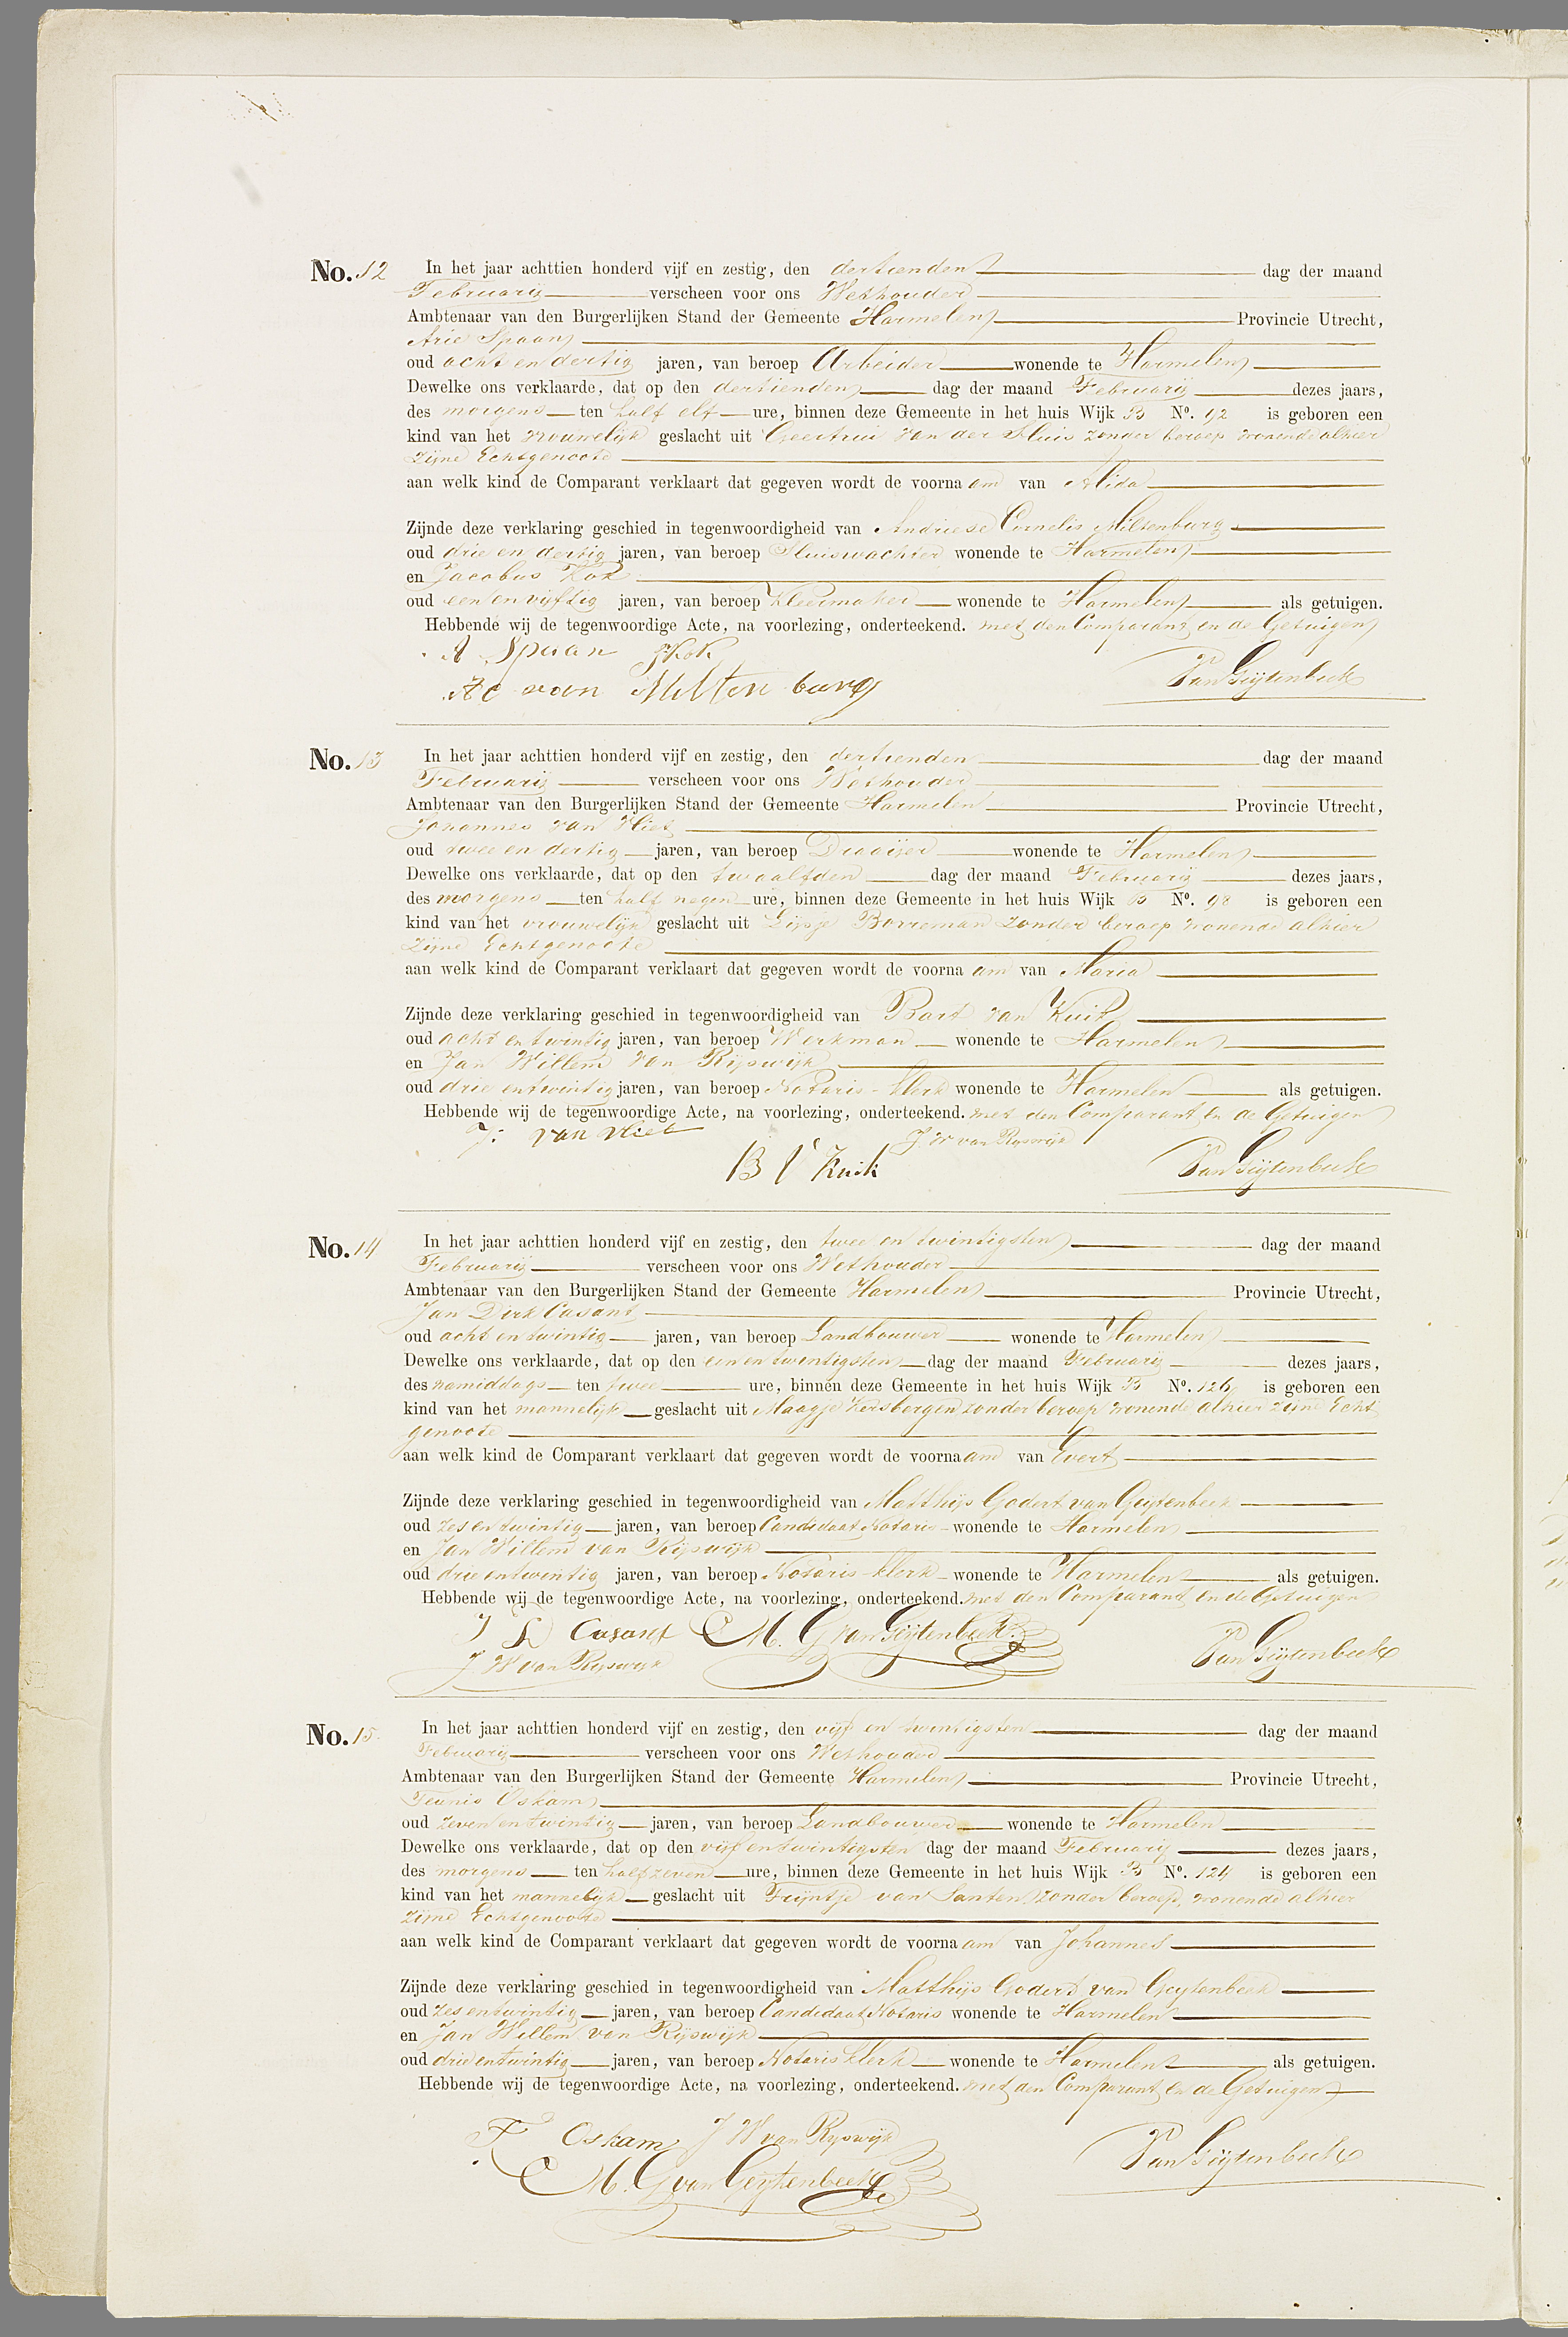 No. 12 In het jaar achttien honderd vijf en zestig, den dertienden dag der maand
Februarij verscheen voor ons Wethouder
Ambtenaar van den Burgerlijken Stand der Gemeente Harmelen Provincie Utrecht,
Arie Spaan
oud acht en dertig jaren, van beroep Arbeider wonende te Harmelen
Dewelke ons verklaarde, dat op den dertienden dag der maand Februarij dezes jaars,
des morgens ten half elf ure, binnen deze Gemeente in het huis Wijk B No. 92 is geboren een
kind van het vrouwelijk geslacht uit Geertrui van der Sluis zonder beroep wonende alhier
zijne Echtgenoote
aan welk kind de Comparant verklaart dat gegeven wordt de voornaam van Alida
Zijnde deze verklaring geschied in tegenwoordigheid van Andriese Cornelis Miltenburg
oud drie en dertig jaren, van beroep Sluiswachter wonende te Harmelen
en Jacobus Kok
oud een en vijftig jaren, van beroep Kleermaker wonende te Harmelen als getuigen.
Hebbende wij de tegenwoordige Acte, na voorlezing, onderteekend. met den Comparant en de Getuigen
A Spaan J Kok
AC van Miltenburg
Van Geijtenbeek
No. 13 In het jaar achttien honderd vijf en zestig, den dertienden dag der maand
Februarij verscheen voor ons Wethouder
Ambtenaar van den Burgerlijken Stand der Gemeente Harmelen Provincie Utrecht,
Johannes van Vliet
oud twee en dertig jaren, van beroep Draaijer wonende te Harmelen
Dewelke ons verklaarde, dat op den twaalfden dag der maand Februarij dezes jaars,
des morgens ten half negen ure, binnen deze Gemeente in het huis Wijk B No. 98 is geboren een
kind van het vrouwelijk geslacht uit Lijsje Borreman zonder beroep wonende alhier
zijne Echtgenoote
aan welk kind de Comparant verklaart dat gegeven wordt de voornaam van Maria
Zijnde deze verklaring geschied in tegenwoordigheid van Bart van Kuik
oud acht en twintig jaren, van beroep Werkman wonende te Harmelen
en Jan Willem van Rijswijk
oud drie en twintig jaren, van beroep Notaris-klerk wonende te Harmelen als getuigen.
Hebbende wij de tegenwoordige Acte, na voorlezing, onderteekend. met den Comparant en de Getuigen
J: van Vliet J. W van Rijswijk
B v Kuik Van Geijtenbeek
No. 14 In het jaar achttien honderd vijf en zestig, den twee en twintigsten dag der maand
Februarij verscheen voor ons Wethouder
Ambtenaar van den Burgerlijken Stand der Gemeente Harmelen Provincie Utrecht,
Jan Dirk Casant
oud acht en twintig jaren, van beroep Landbouwer wonende te Harmelen
Dewelke ons verklaarde, dat op den een en twintigsten dag der maand Februarij dezes jaars,
des namiddags ten twee ure, binnen deze Gemeente in het huis Wijk B No. 126 is geboren een
kind van het mannelijk geslacht uit Maagje Kersbergen zonder beroep wonende alhier zijne Echt
genoote
aan welk kind de Comparant verklaart dat gegeven wordt de voornaam van Evert
Zijnde deze verklaring geschied in tegenwoordigheid van Matthijs Godert van Geijtenbeek
oud zes en twintig jaren, van beroep Candidaat Notaris wonende te Harmelen
en Jan Willem van Rijswijk
oud drie en twintig jaren, van beroep Notaris-klerk wonende te Harmelen als getuigen.
Hebbende wij de tegenwoordige Acte, na voorlezing, onderteekend. met den Comparant en de Getuigen
J D Casant M. G van Geijtenbeek
J W van Rijswijk Van Geijtenbeek
No. 15 In het jaar achttien honderd vijf en zestig, den vijf en twintigsten dag der maand
Februarij verscheen voor ons Wethouder
Ambtenaar van den Burgerlijken Stand der Gemeente Harmelen Provincie Utrecht,
Teunis Oskam
oud zeven en twintig jaren, van beroep Landbouwer wonende te Harmelen
Dewelke ons verklaarde, dat op den vijf en twintigsten dag der maand Februarij dezes jaars,
des morgens ten half zeven ure, binnen deze Gemeente in het huis Wijk B No. 124 is geboren een
kind van het mannelijk geslacht uit Trijntje van Santen, zonder beroep, wonende alhier
zijne Echtgenoote
aan welk kind de Comparant verklaart dat gegeven wordt de voornaam van Johannes
Zijnde deze verklaring geschied in tegenwoordigheid van Matthijs Godert van Geijtenbeek
oud zes en twintig jaren, van beroep Candidaat Notaris wonende te Harmelen
en Jan Willem van Rijswijk
oud drie en twintig jaren, van beroep Notaris klerk wonende te Harmelen als getuigen.
Hebbende wij de tegenwoordige Acte, na voorlezing, onderteekend. met den Comparant en de Getuigen
T Oskam J W van Rijswijk
M. G van Geijtenbeek Van Geijtenbeek